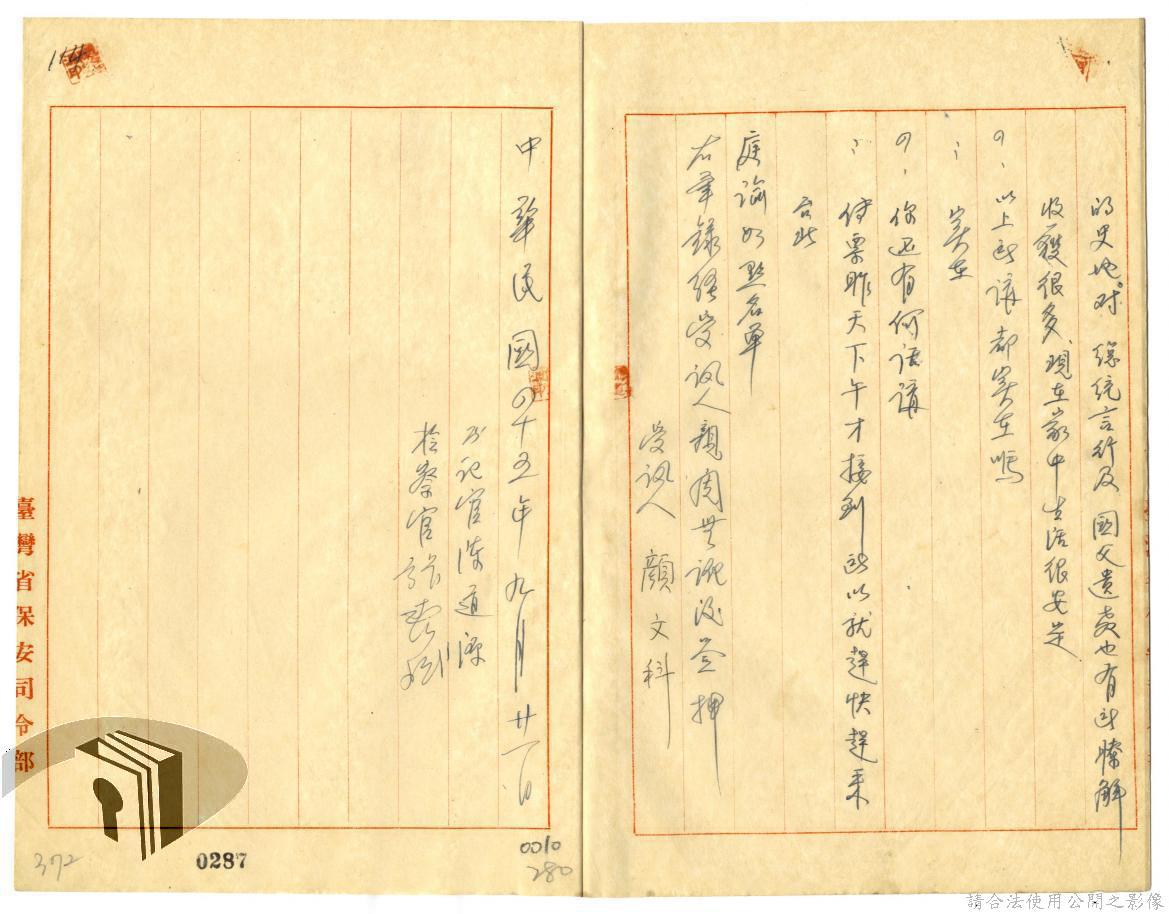 的史地。对 總統言行及 國父遺教也有所瞭解
收穫很多、現在家中生活很安定
以上所講都实在嗎
实在
你还有何話講
傳票昨天下午才接到所以就趕快趕来
右此
庭諭如點名单
右筆錄經受訊人親閱無訛後签押
受訊人 顏文科
中華民國四十五年九月廿一日
書记官陈道源
检察官
臺灣省保安司令部
372
0287
0010
280
請合法使用公開之影像